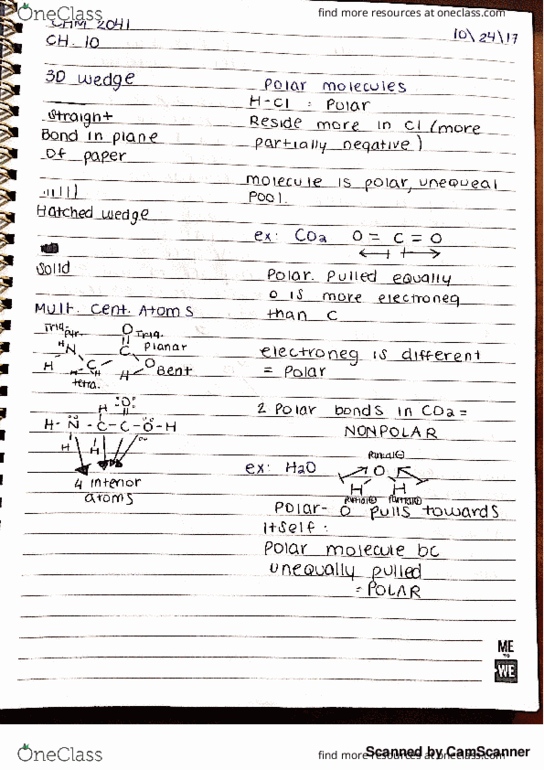 OneClass
find more resources at oneclass.com
CHM 2041
CH. 10
10\24\17
3D wedge
straight
Bond in plane
of paper
Hatched wedge
Solid
Mult. Cent. Atoms
Trig.
Pyr.
O Trig.
Planar
H N
C
H
C
H
H
O Bent
H
tetra.
:O:
H
H - N - C - C - O - H
H
H
4 interior
atoms
Polar molecules
H-Cl : Polar
Reside more in Cl (more
partially negative)
molecule is polar, unequeal
Pool.
ex: CO2 O = C = O
Polar. Pulled equally
O is more electroneg
than C
electroneg is different
= Polar
2 Polar bonds in CO2 =
NONPOLAR
Partial(-)
ex: H2O
O
H H
Partial(+) Partial(+)
Polar- O pulls towards
itself:
Polar molecule bc
unequally pulled
= POLAR
ME
TO
WE
OneClass
find more resources at oneclass.com
Scanned by CamScanner